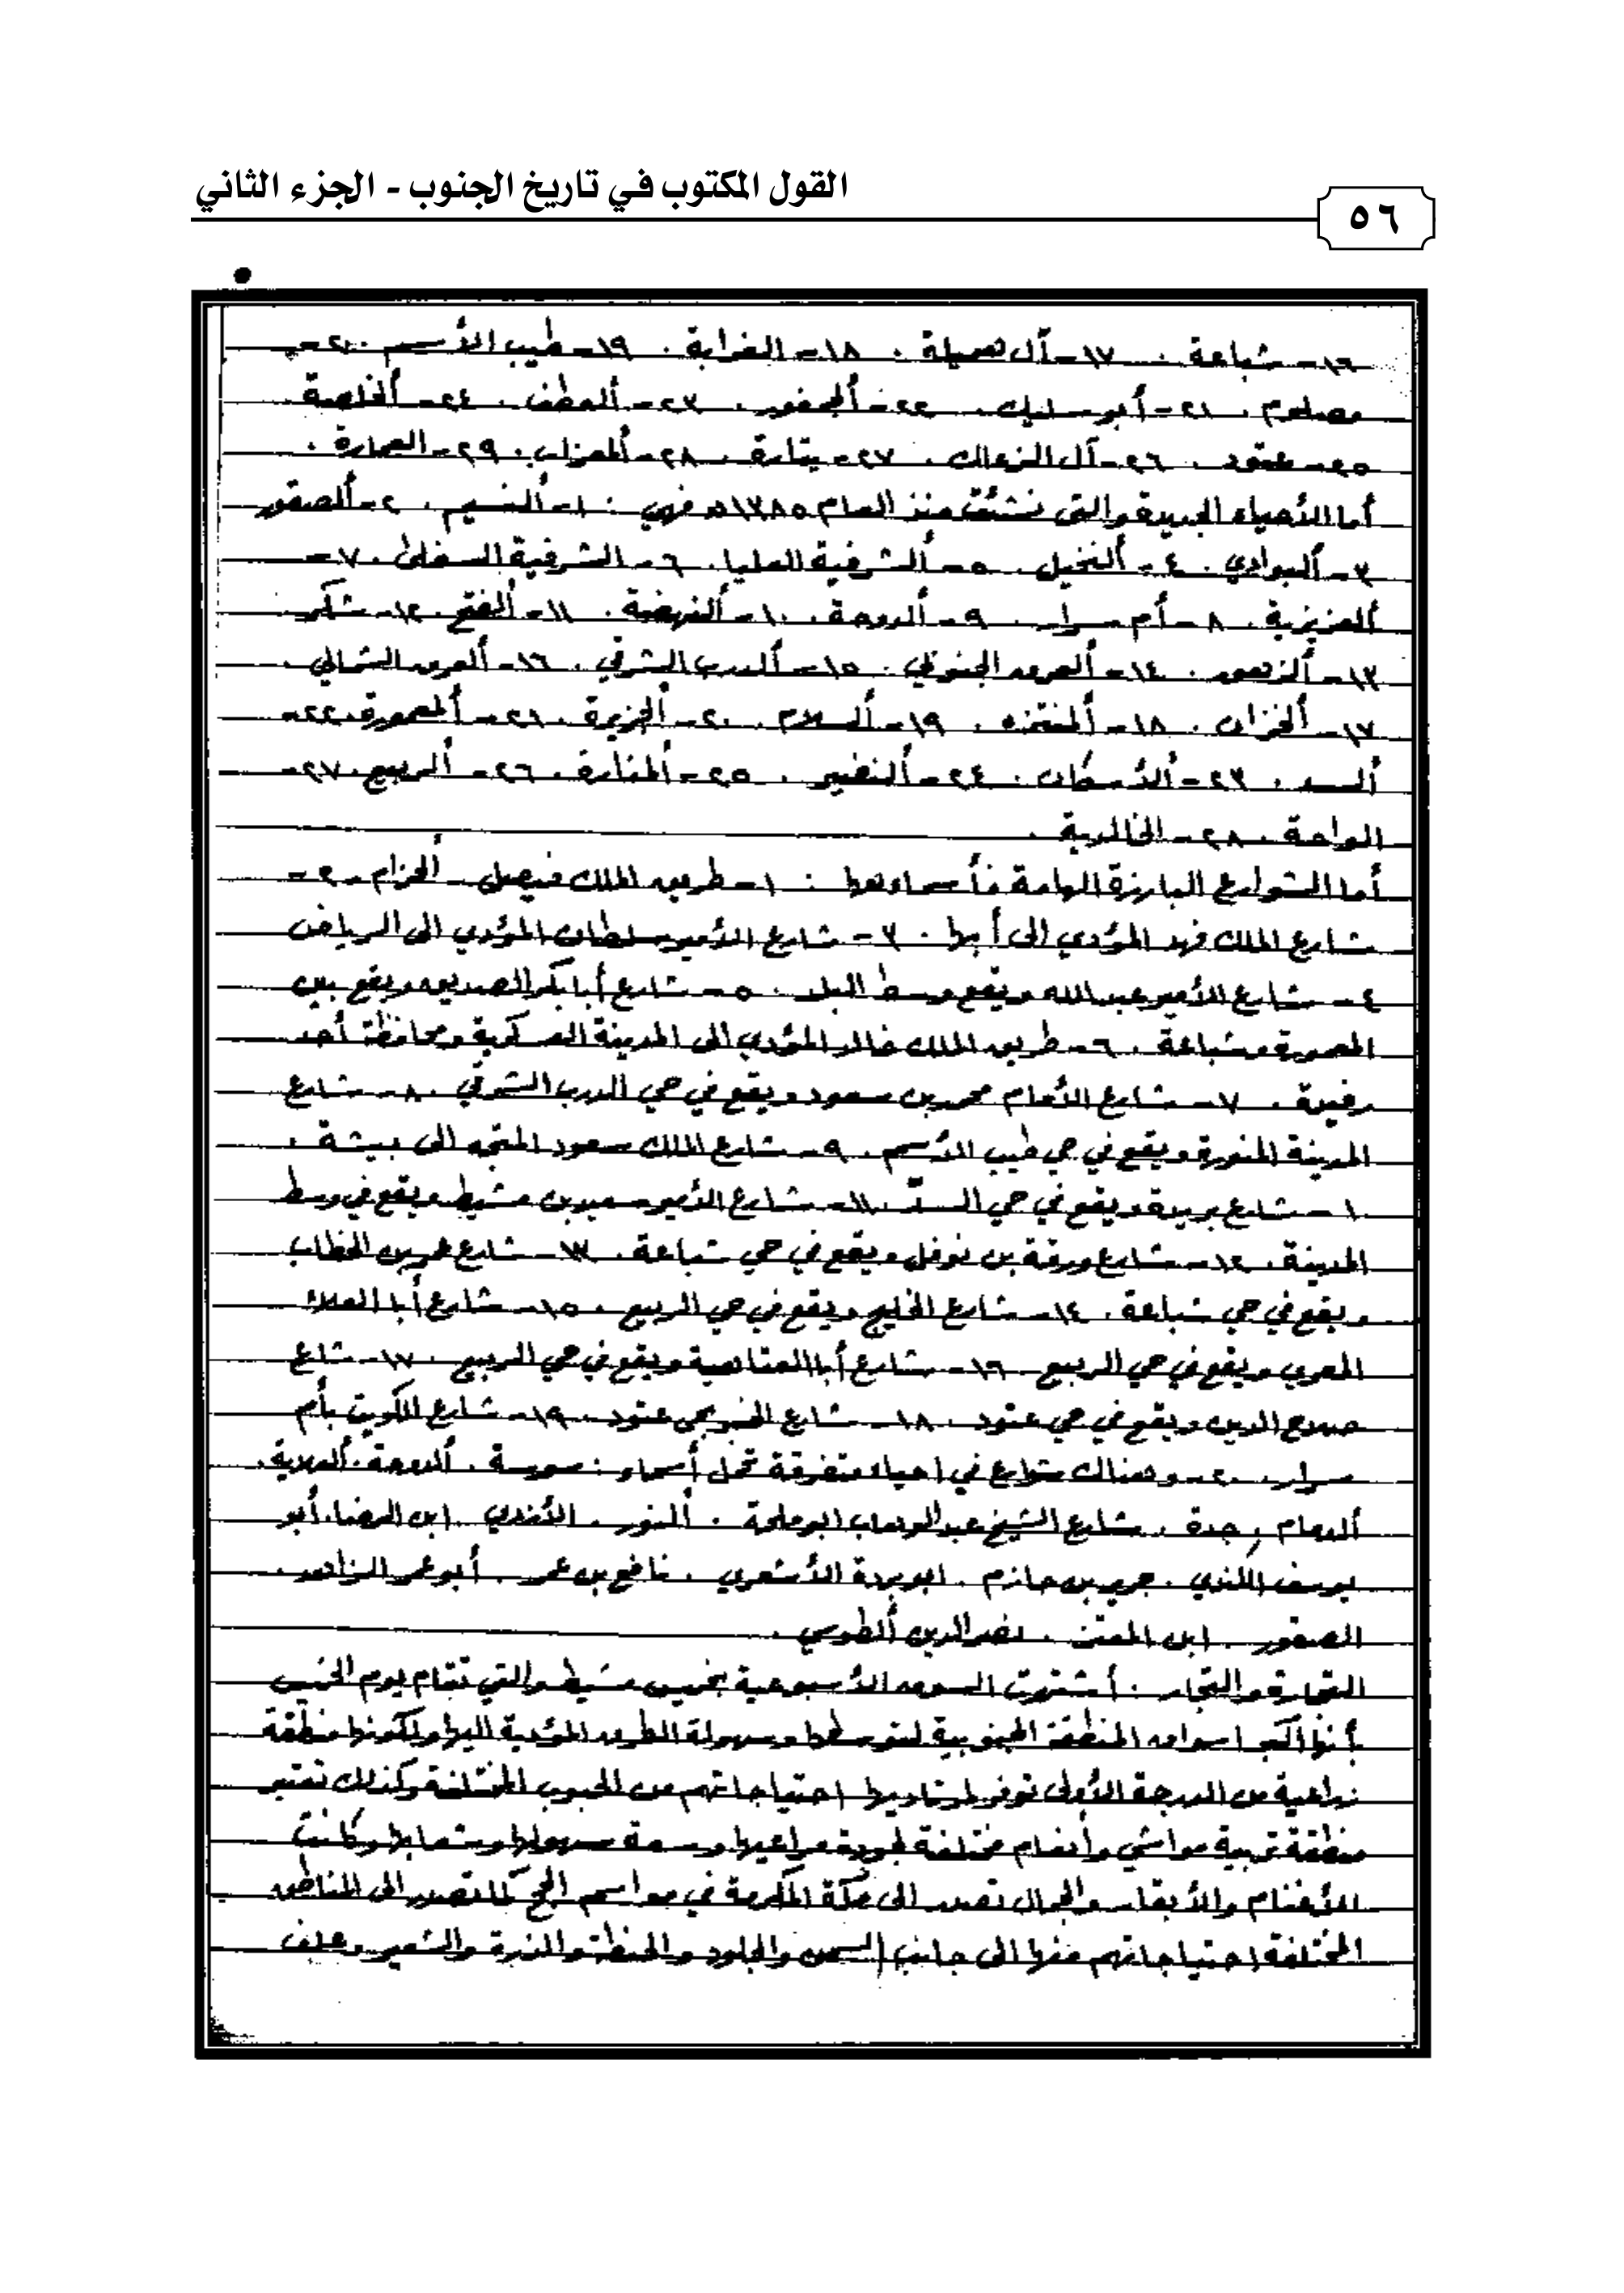 القول المكتوب في تاريخ الجنوب - الجزء الثاني
٥٦
١٦- شباعة . ١٧- آل هميلة . ١٨- الغرابة . ١٩- طيب الأسم . ٢٠-
مصلوم . ٢١- أبو سليك . ٢٢- ألجمفور . ٢٣- ألعطف . ٢٤- ألخلصة
٢٥- عتود . ٢٦- آل الزعال . ٢٧- يتارة . ٢٨- ألمعزاب . ٢٩- العمارة .
أما الأحياء الجديدة والتي نشئت منذ العام ١٣٨٥هـ فهي : ١- ألنسيم . ٢- ألصقور
٣- ألبوادي . ٤- ألنخيل . ٥- ألشرفية العليا . ٦- الشرفية السفلى . ٧-
ألعزيزية . ٨- أم سرار . ٩- ألدوحة . ١٠- ألنهضة . ١١- ألفتح . ١٢- شكر
١٣- ألزهور . ١٤- ألعرق الجنوبي . ١٥- ألدرب الشرقي . ١٦- ألعرق الشمالي .
١٧- ألخزان . ١٨- ألمنتزه . ١٩- ألسلام . ٢٠- ألجزيرة . ٢١- ألمعمورة . ٢٢-
ألسد . ٢٣- ألأسكان . ٢٤- ألنضير . ٢٥- ألمنارة . ٢٦- ألربيع . ٢٧-
الواحة . ٢٨- الخالدية .
أما الشوارع البارزة الهامة فأسماءها : ١- طريق الملك فيصل - ألحزام . ٢-
شارع الملك فهد المؤدي الى أبها . ٣- شارع الأمير سلطان المؤدي الى الرياض
٤- شارع الأمير عبد الله ويقع وسط البلد . ٥- شارع أبا بكر الصديق ويقع بين
المعمورة وشباعة . ٦- طريق الملك خالد المؤدي الى المدينة العسكرية ومحافظة أحد
رفيدة . ٧- شارع الأمام محمد بن سعود ويقع في حي الدرب الشرقي . ٨- شارع
المدينة المنورة ويقع في حي طيب الأسم . ٩- شارع الملك سعود المتجه الى بيشة .
١٠- شارع بريدة ويقع في حي السدّ . ١١- شارع الأمير سعيد بن مشيط ويقع في وسط
المدينة . ١٢- شارع ورقة بن نوفل ويقع في حي شباعة . ١٣- شارع عمر بن الخطاب
ويقع في حي شباعة . ١٤- شارع الخليج ويقع في حي الربيع . ١٥- شارع أبا العلاء
المعري ويقع في حي الربيع . ١٦- شارع أبا العتاهية ويقع في حي الربيع . ١٧- شارع
صلاح الدين ويقع في حي عتود . ١٨- شارع عتود . ١٩- شارع الكويت بأم
سرار . ٢٠- وهناك شوارع في احياء متفرقة تحمل أسماء : سوسة . ألدوحة .
ألدمام ، جدة . شارع الشيخ عبد الوهاب ابو ملحة . ألنور . ابن الرضا . أبو
يوسف الكندي . جرير بن حازم . ابو بردة الأشعري . نافع بن عمر . أبو عمر الزاهد .
الصقور . ابن المعتز . نصر الدين ألطوسي .
التجارة والتجار : أشتهرت السوق الأسبوعية بخميس مشيط والتي تقام يوم الخميس
بأنها أكبر اسواق المنطقة الجنوبية لتوسطها وسهولة الطرق المؤدية اليها ولكونها منطقة
زراعية من الدرجة الأولى توفر لمرتاديها احتياجاتهم من الحبوب المختلفة وكذلك تعتبر
منطقة تربية مواشي وأنعام مختلفة لجودة مراعيها وسعة سهولها وشعابها وكانت
الأغنام والأبقار والجمال تصدر الى مكة المكرمة في مواسم الحج كما تصدر الى المناطق
المختلفة احتياجاتهم منها الى جانب السمن والجلود والحنطة والذرة والشعير وعلف